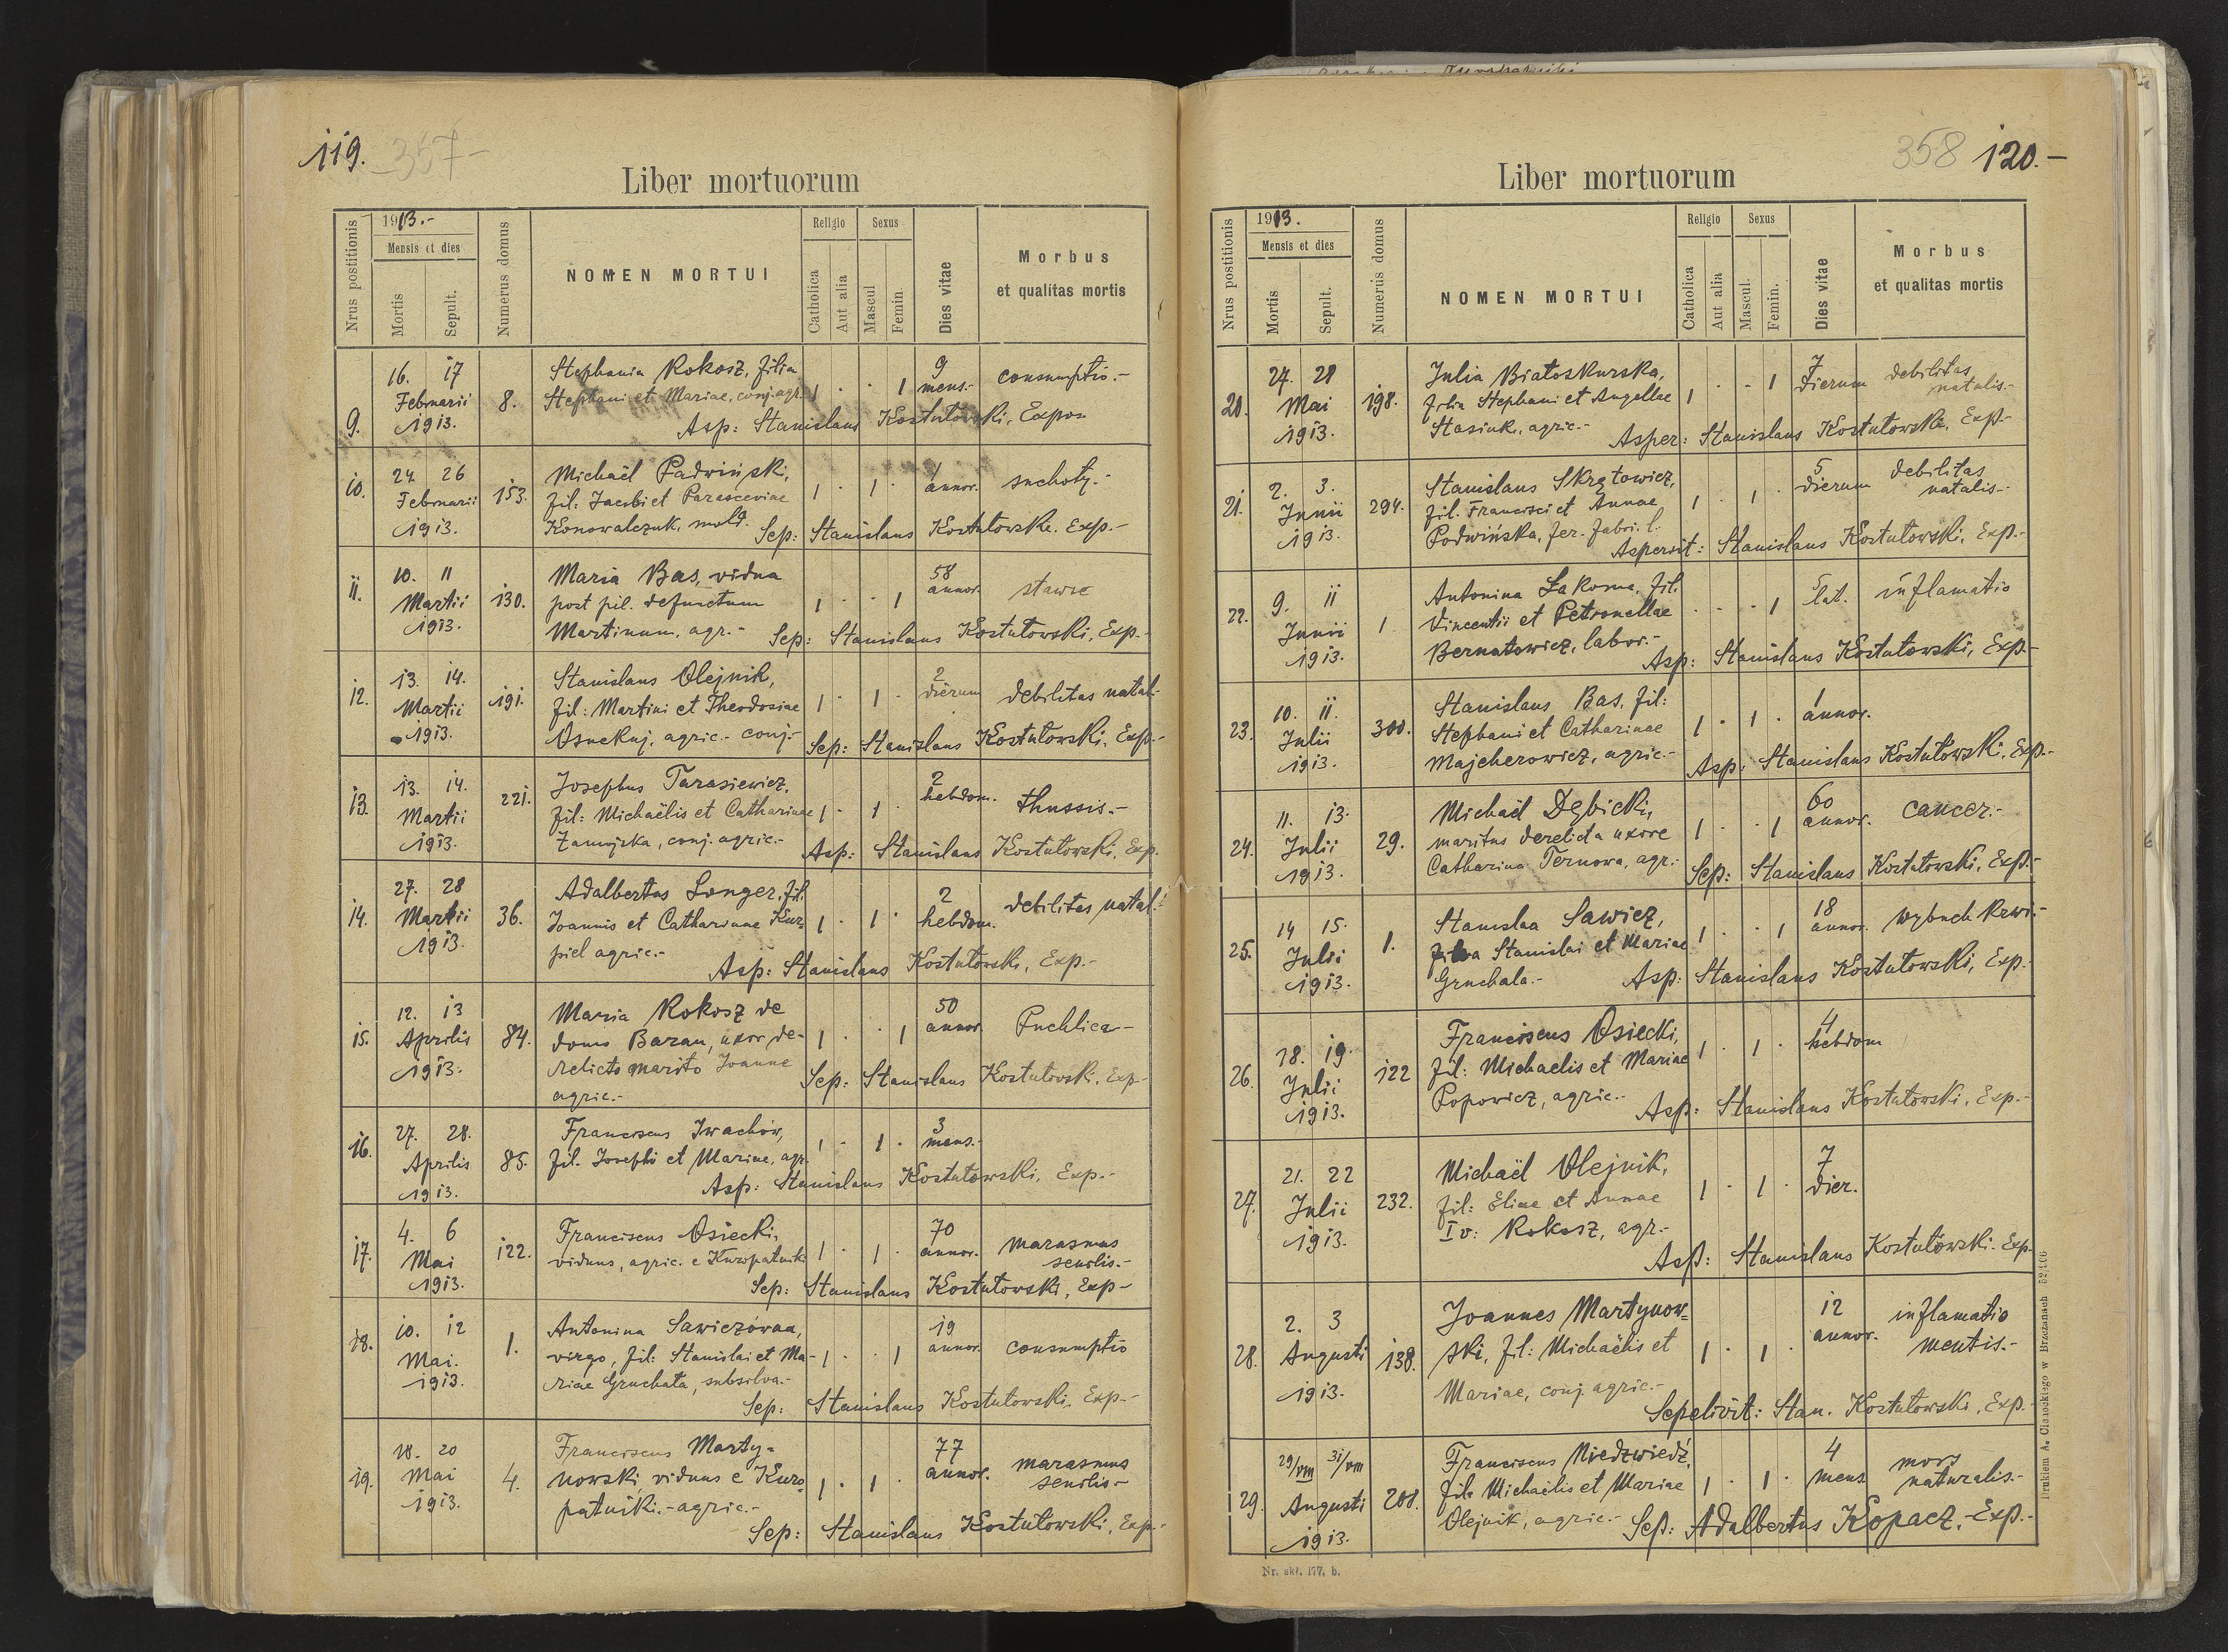 119. 357-
Liber mortuorum
Nrus postitionis
1913.-
Mensis et dies
Mortis
Sepult.
Numerus domus
NOMEN MORTUI
Religio
Catholica
Aut alia
Sexus
Mascul
Femin.
Dies vitae
Morbus
et qualitas mortis
9. 16. 17 Februarii 1913. 8.
Stephania Rokosz, filia
Stephani et Mariae, conj. agr.
1 · · 1 9 mens.- consumptio.-
Asp: Stanislaus Kostutowski, Expos
10. 24. 26 Februarii 1913. 153.
Michaël Padwiński,
fil: Jacobi et Parasceviae
Konowalczuk, mold.
1 · 1 · 1 annor. suchoty.-
Sep: Stanislaus Kostutowski. Exp.-
11. 10. 11 Martii 1913. 130.
Maria Bas, vidua
post pil. defunctum
Martinum, agr.-
1 · · 1 58 annor. stawie
Sep: Stanislaus Kostutowski, Exp.-
12. 13. 14. Martii 1913. 191.
Stanislaus Olejnik,
fil: Martini et Theodosiae
Osuckuj, agric.- conj.-
1 · 1 · 2 dierum debilitas natal.
Sep: Stanislaus Kostutowski, Exp.-
13. 13. 14. Martii 1913. 221.
Josephus Tarasiewicz,
fil: Michaëlis et Catharinae
Zamojska, conj. agric.-
1 · 1 2 hebdom. thussis.-
Asp: Stanislaus Kostutowski, Exp.
14. 27. 28 Martii 1913. 36.
Adalbertus Longer, fil.
Joannis et Catharinae Kur=
piel agric.-
1 · 1 · 2 hebdom. debilitas natal.
Asp: Stanislaus Kostutowski, Exp.-
15. 12. 13 Aprilis 1913. 84.
Maria Rokosz de
domo Baran, uxor de-
relicto marito Joanne
agric.-
1 · · 1 50 annor. Puchlica-
Sep: Stanislaus Kostutowski, Exp-
16. 27. 28. Aprilis 1913. 85.
Franciscus Iwachów,
fil. Josephi et Mariae, agr.
1 · 1 · 3 mens.-
Asp: Stanislaus Kostutowski, Exp.-
17. 4. 6 Mai 1913. 122.
Franciscus Osiecki,
viduus, agric. e Kuropatnik
1 · 1 · 70 annor. marasmus senilis.-
Sep: Stanislaus Kostutowski, Exp-
18. 10. 12 Mai. 1913. 1.
Antonina Sawiczówna,
virgo, fil: Stanislai et Ma-
riae Gruchała, subsilva.-
1 · · 1 19 annor. consumptio
Sep: Stanislaus Kostutowski, Exp.-
19. 18. 20 Mai 1913. 4.
Franciscus Marty=
nowski, viduus e Kuro
patniki.- agric.-
1 · 1 · 77 annor. marasmus senilis-
Sep: Stanislaus Kostutowski, Exp.-
358 120.-
Liber mortuorum
Nrus postitionis
1913.
Mensis et dies
Mortis
Sepult.
Numerus domus
NOMEN MORTUI
Religio
Catholica
Aut alia
Sexus
Mascul.
Femin.
Dies vitae
Morbus
et qualitas mortis
20. 27. 28 Mai 1913. 198.
Julia Białoskurska,
filia Stephani et Angellae
Stasiuk, agric.-
1 · - 1 7 dierum debilitas natalis.-
Asper: Stanislaus Kostutowski, Exp.-
21. 2. 3. Junii 1913. 294.
Stanislaus Skrętowicz,
fil. Francisci et Annae
Podwińska, fer. fabri. l.
1 · 1 · 5 dierum debilitas natalis.-
Aspersit: Stanislaus Kostutowski, Exp.-
22. 9. 11 Junii 1913. 1
Antonina Łakoma, fil.
Vincentii et Petronellae
Bernatowicz, labor.-
· · · 1 5 lat. inflamatio
Asp: Stanislaus Kostutowski, Exp-
23. 10. 11. Julii 1913. 300.
Stanislaus Bas, fil:
Stephani et Catharinae
Majcherowicz, agric.-
1 · 1 · 1 annor.
Asp: Stanislaus Kostutowski, Exp.-
24. 11. 13. Julii 1913. 29.
Michaël Dębicki,
maritus derelicta uxore
Catharina Ternowa, agr.
1 · · 1 60 annor. cancer.-
Sep: Stanislaus Kostutowski, Exp.-
25. 14 15. Julii 1913. 1.
Stanislaa Sawicz,
filia Stanislai et Mariae
Gruchala.-
1 · · 1 18 annor. wybuch krwi.-
Asp: Stanislaus Kostutowski, Exp.-
26. 18. 19. Julii 1913. 122
Franciscus Osiecki,
fil: Michaelis et Mariae
Popowicz, agric.-
1 · 1 · 4 hebdom
Asp: Stanislaus Kostutowski, Exp.-
27. 21. 22 Julii 1913. 232.
Michaël Olejnik,
fil: Eliae et Annae
Iv: Rokosz, agr.-
1 · 1 · 7 dier.
Asp: Stanislaus Kostutowski. Exp
28. 2. 3 Augusti 1913. 138.
Joannes Martynow=
ski, fil: Michaëlis et
Mariae, conj. agric.-
1 · 1 · 12 annor. inflamatio mentis.-
Sepelivit: Stan. Kostutowski, Exp.-
29. 29/VIII 31/VIII Augusti 1913. 208.
Franciscus Niedzwiedź,
fil. Michaëlis et Mariae
Olejnik, agric.-
1 · 1 · 4 mens mors naturalis.-
Sep: Adalbertus Kopacz, Exp.-
Nr. skł. 177. b.
Drukiem A. Cienockiego w Brzeżanach 52/406